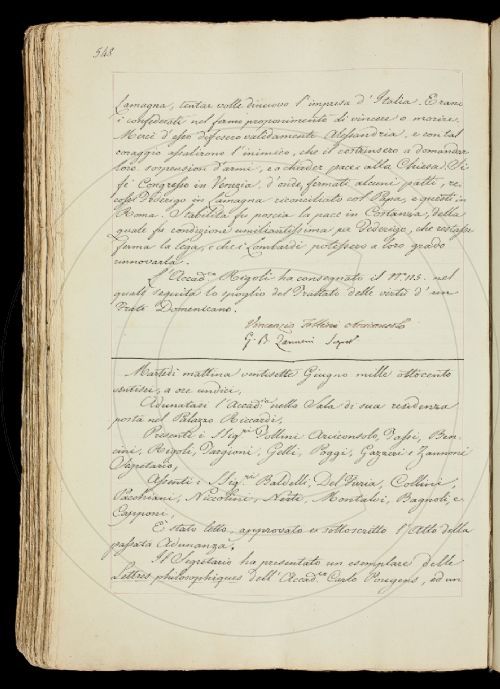 548
Lamagna, tentar volle dinuovo l'impresa d'Italia. Erano
i confederati nel fermo proponimento di vincere o morire.
Mercè d'esso difesero validamente Alessandria, e con tal
coraggio assalirono l'inimico, che il costrinsero a domandar
loro sospension d'armi, e a chieder pace alla Chiesa. Si
fè Congresso in Venezia, d'onde, fermati alcuni patti, re-
cossi Federigo in Lamagna riconciliato col Papa, e questi in
Roma. Stabilita fu poscia la pace in Costanza, della
quale fu condizione umiliantissima per Federigo, che restasse
ferma la lega, e che i Lombardi potessero a loro grado
rinnovarla.
L'Accad.co Rigoli ha consegnato il N.° 115. nel
quale seguita lo spoglio del Trattato delle virtù d'un
Frate Domenicano.
Vincenzio Follini Arciconsolo
G. B. Zannoni Segret.
Martedì mattina ventisette Giugno mille ottocento
ventisei, a ore undici,
Adunatasi l'Accad.ia nella Sala di sua residenza
posta nel Palazzo Riccardi,
Presenti i Sig.ri Follini Arciconsolo, Tassi, Ben-
cini, Rigoli, Targioni, Gelli, Poggi, Gazzeri e Zannoni
Segretario,
Assenti i Sig.ri Baldelli, Del Furia, Collini,
Pacchiani, Niccolini, Nesti, Montalvi, Bagnoli, e
Capponi,
E' stato letto, approvato e sottoscritto l'Atto della
passata Adunanza.
Il Segretario ha presentato un esemplare delle
Lettres philosophiques dell'Accad.co Carlo Pougens, ed un